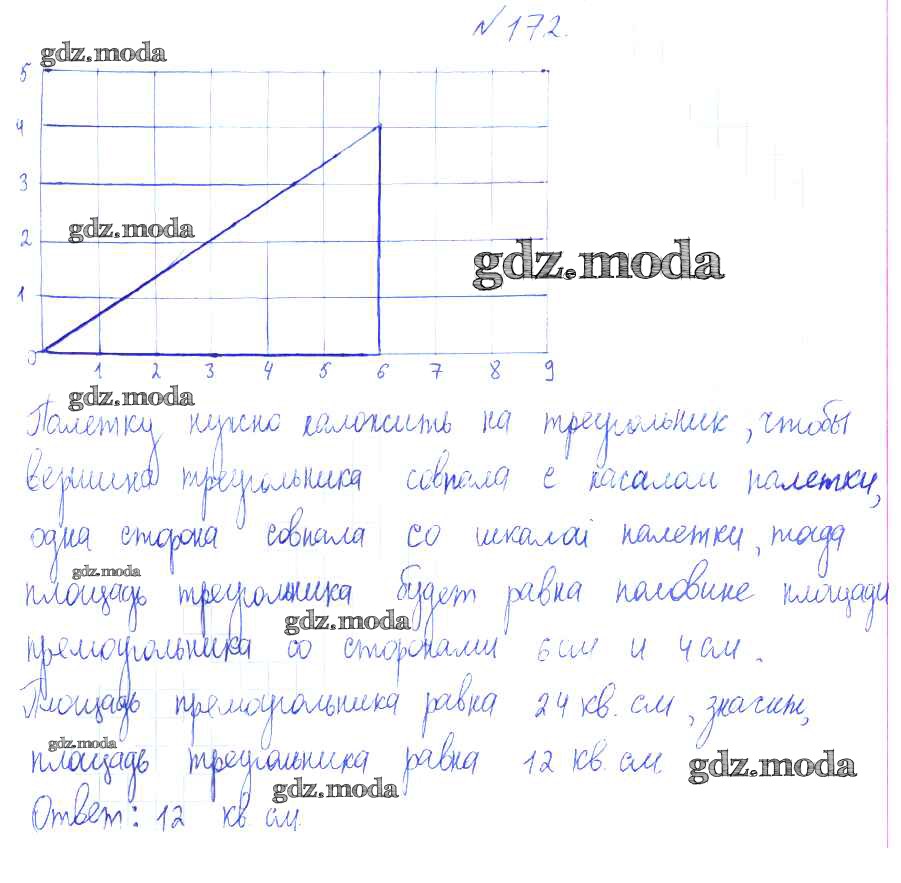 № 172.
gdz.moda
5
4
3
gdz.moda
2
gdz.moda
1
0 1 2 3 4 5 6 7 8 9
gdz.moda
Палетку нужно наложить на треугольник, чтобы
вершина треугольника совпала с началом палетки,
одна сторона совпала со шкалой палетки, тогда
gdz.moda
площадь треугольника будет равна половине площади
gdz.moda
прямоугольника со сторонами 6 см и 4 см.
Площадь прямоугольника равна 24 кв. см, значит,
gdz.moda
площадь треугольника равна 12 кв. см.
gdz.moda
gdz.moda
Ответ: 12 кв см.